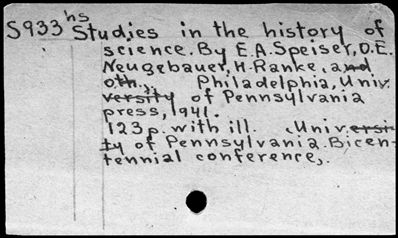 S933hs Studies in the history of
science. By E.A. Speiser, O.E.
Neugebauer, H. Ranke, and
oth.,. Philadelphia, Univ.
versity of Pennsylvania
press, 1941.
123p. with ill. (Univ.ersi-
ty of Pennsylvania. Bicen-
tennial conference,.